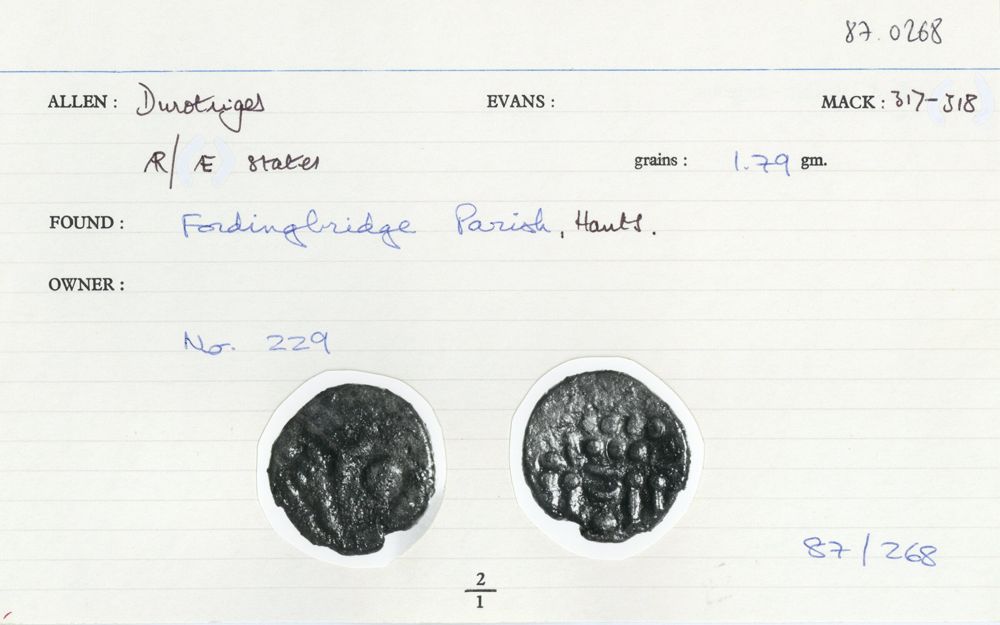 87.0268
ALLEN : Durotriges EVANS : MACK : 317-318
ÆR/Æ staters grains : 1.79 gm.
FOUND : Fordingbridge Parish, Hants.
OWNER :
No. 229
87/268
2
1